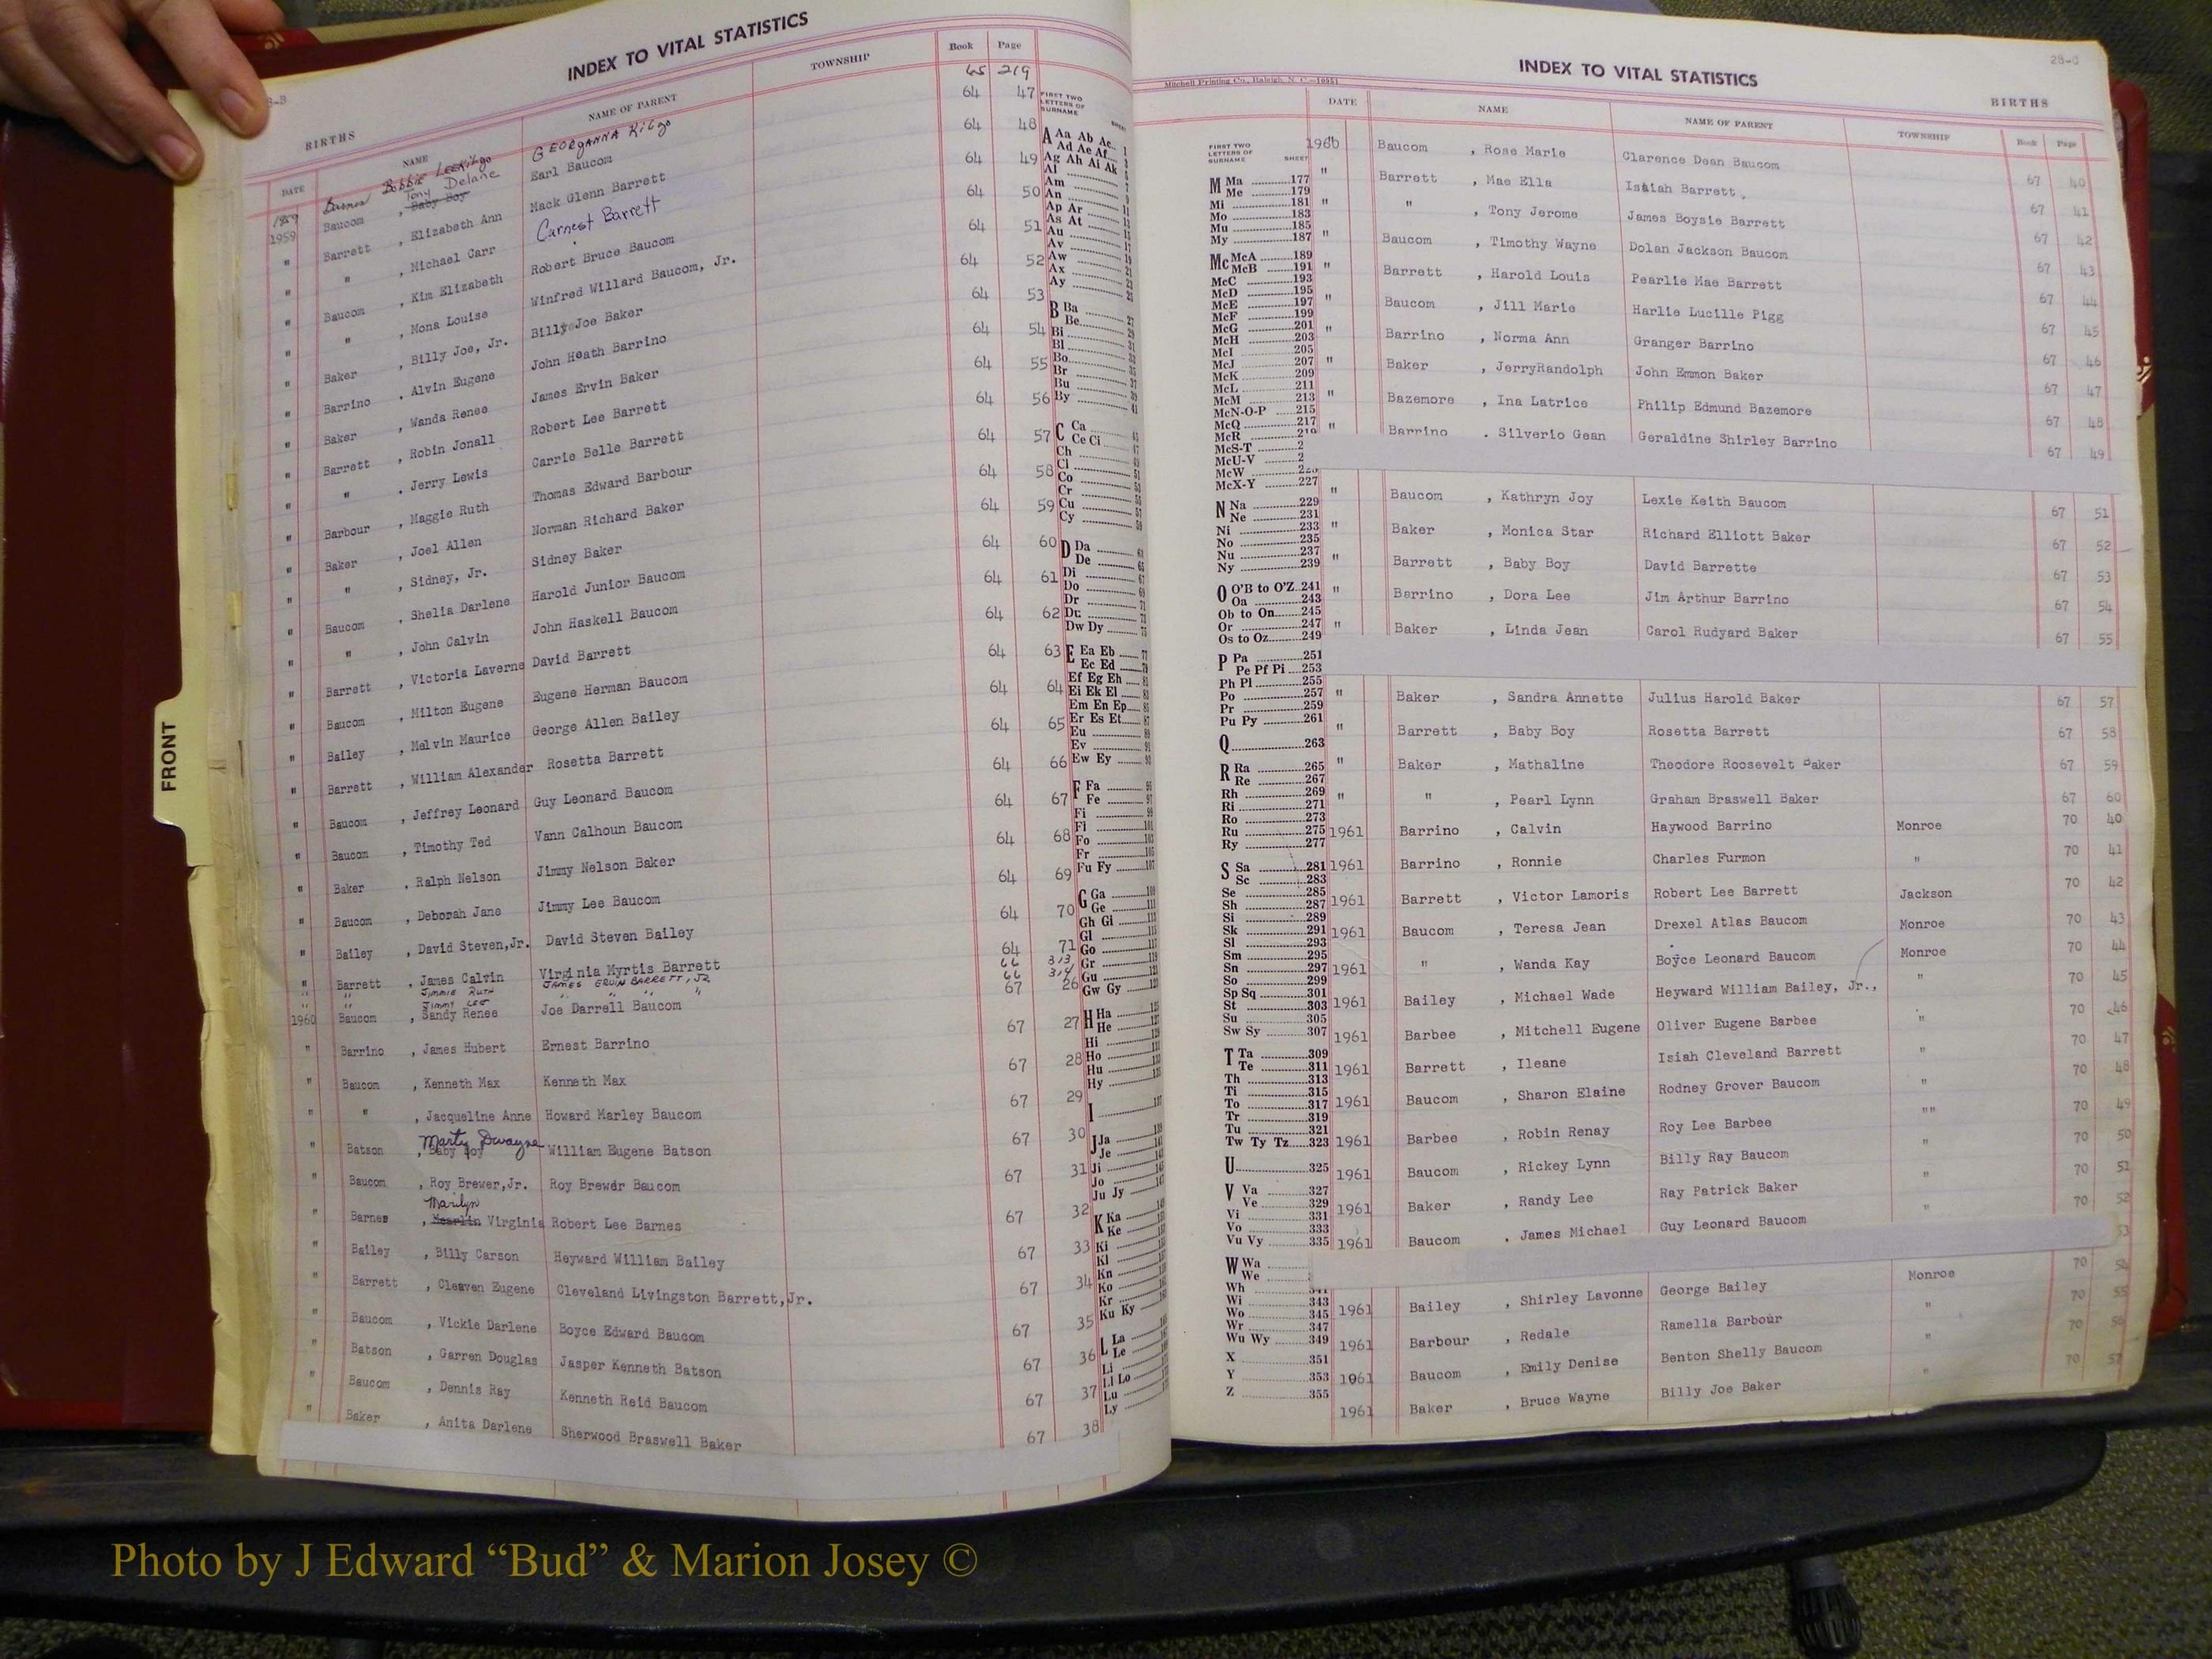 INDEX TO VITAL STATISTICS
BIRTHS
DATE NAME NAME OF PARENT TOWNSHIP Book Page
1959 Barnes Bobbie Lee Kilgo GEORGANNA Kilgo 65 219
1959 Baucom , Tony Delane Baby Boy Earl Baucom 64 47
" Barrett , Elizabeth Ann Mack Glenn Barrett 64 48
" " , Michael Carr Earnest Barrett 64 49
" Baucom , Kim Elizabeth Robert Bruce Baucom 64 50
" " , Mona Louise Winfred Willard Baucom, Jr. 64 51
" Baker , Billy Joe, Jr. Billy Joe Baker 64 52
" Barrino , Alvin Eugene John Heath Barrino 64 53
" Baker , Wanda Renee James Ervin Baker 64 54
" Barrett , Robin Jonall Robert Lee Barrett 64 55
" " , Jerry Lewis Carrie Belle Barrett 64 56
" Barbour , Maggie Ruth Thomas Edward Barbour 64 57
" Baker , Joel Allen Norman Richard Baker 64 58
" " , Sidney, Jr. Sidney Baker 64 59
" Baucom , Shelia Darlene Harold Junior Baucom 64 60
" " , John Calvin John Haskell Baucom 64 61
" Barrett , Victoria Laverne David Barrett 64 62
" Baucom , Milton Eugene Eugene Herman Baucom 64 63
" Bailey , Melvin Maurice George Allen Bailey 64 64
" Barrett , William Alexander Rosetta Barrett 64 65
" Baucom , Jeffrey Leonard Guy Leonard Baucom 64 66
" Baucom , Timothy Ted Vann Calhoun Baucom 64 67
" Baker , Ralph Nelson Jimmy Nelson Baker 64 68
" Baucom , Deborah Jane Jimmy Lee Baucom 64 69
" Bailey , David Steven,Jr. David Steven Bailey 64 70
" Barrett , James Calvin Virginia Myrtis Barrett 64 71
" " JIMMIE RUTH JAMES ERVIN BARRETT, JR. 66 313
" " JIMMY LEE " " " " 66 314
1960 Baucom , Sandy Renee Joe Darrell Baucom 67 26
" Barrino , James Hubert Ernest Barrino 67 27
" Baucom , Kenneth Max Kenneth Max 67 28
" " , Jacqueline Anne Howard Marley Baucom 67 29
" Batson , Marty Dwayne Baby Boy William Eugene Batson 67 30
" Baucom , Roy Brewer,Jr. Roy Brewer Baucom 67 31
" Barnes , Marilyn Virginia Robert Lee Barnes 67 32
" Bailey , Billy Carson Heyward William Bailey 67 33
" Barrett , Cleaven Eugene Cleveland Livingston Barrett,Jr. 67 34
" Baucom , Vickie Darlene Boyce Edward Baucom 67 35
" Batson , Garren Douglas Jasper Kenneth Batson 67 36
" Baucom , Dennis Ray Kenneth Reid Baucom 67 37
" Baker , Anita Darlene Sherwood Braswell Baker 67 38
FRONT
FIRST TWO LETTERS OF SURNAME SHEET
A Aa Ab Ac
Ad Ae Af
Ag Ah Ai Ak
Al
Am
An
Ap Ar
As At
Au
Av
Aw
Ax
Ay
B Ba
Be
Bi
Bl
Bo
Br
Bu
By
C Ca
Ce Ci
Ch
Cl
Co
Cr
Cu
Cy
D Da
De
Di
Do
Dr
Du
Dw Dy
E Ea Eb
Ec Ed
Ef Eg Eh
Ei Ek El
Em En Ep
Er Es Et
Eu
Ev
Ew Ey
F Fa
Fe
Fi
Fl
Fo
Fr
Fu Fy
G Ga
Ge
Gh Gi
Gl
Go
Gr
Gu
Gw Gy
H Ha
He
Hi
Ho
Hu
Hy
I
J Ja
Je
Ji
Jo
Ju Jy
K Ka
Ke
Ki
Kl
Kn
Ko
Kr
Ku Ky
L La
Le
Li
Ll Lo
Lu
Ly
INDEX TO VITAL STATISTICS
28-C
Mitchell Printing Co., Raleigh, N. C.
BIRTHS
DATE NAME NAME OF PARENT TOWNSHIP Book Page
FIRST TWO LETTERS OF SURNAME SHEET
M Ma 177
Me 179
Mi 181
Mo 183
Mu 185
My 187
Mc McA 189
McB 191
McC 193
McD 195
McE 197
McF 199
McG 201
McH 203
McI 205
McJ 207
McK 209
McL 211
McM 213
McN-O-P 215
McQ 217
McR
McS-T
McU-V
McW
McX-Y 227
N Na 229
Ne 231
Ni 233
No 235
Nu 237
Ny 239
O O'B to O'Z 241
Oa 243
Ob to On 245
Or 247
Os to Oz 249
P Pa 251
Pe Pf Pi 253
Ph Pl 255
Po 257
Pr 259
Pu Py 261
Q 263
R Ra 265
Re 267
Rh 269
Ri 271
Ro 273
Ru 275
Ry 277
S Sa 281
Sc 283
Se 285
Sh 287
Si 289
Sk 291
Sl 293
Sm 295
Sn 297
So 299
Sp Sq 301
St 303
Su 305
Sw Sy 307
T Ta 309
Te 311
Th 313
Ti 315
To 317
Tr 319
Tu 321
Tw Ty Tz 323
U 325
V Va 327
Ve 329
Vi 331
Vo 333
Vu Vy 335
W Wa
We
Wh
Wi 343
Wo 345
Wr 347
Wu Wy 349
X 351
Y 353
Z 355
1960 Baucom , Rose Marie Clarence Dean Baucom 67 40
" Barrett , Mae Ella Isaiah Barrett 67 41
" " , Tony Jerome James Boysie Barrett 67 42
" Baucom , Timothy Wayne Dolan Jackson Baucom 67 43
" Barrett , Harold Louis Pearlie Mae Barrett 67 44
" Baucom , Jill Marie Harlie Lucille Pigg 67 45
" Barrino , Norma Ann Granger Barrino 67 46
" Baker , JerryRandolph John Emmon Baker 67 47
" Bazemore , Ina Latrice Philip Edmund Bazemore 67 48
" Barrino , Silverio Gean Geraldine Shirley Barrino 67 49
" Baucom , Kathryn Joy Lexie Keith Baucom 67 51
" Baker , Monica Star Richard Elliott Baker 67 52
" Barrett , Baby Boy David Barrette 67 53
" Barrino , Dora Lee Jim Arthur Barrino 67 54
" Baker , Linda Jean Carol Rudyard Baker 67 55
" Baker , Sandra Annette Julius Harold Baker 67 57
" Barrett , Baby Boy Rosetta Barrett 67 58
" Baker , Mathaline Theodore Roosevelt Baker 67 59
" " , Pearl Lynn Graham Braswell Baker 67 60
1961 Barrino , Calvin Haywood Barrino Monroe 70 40
1961 Barrino , Ronnie Charles Furmon " 70 41
1961 Barrett , Victor Lamoris Robert Lee Barrett Jackson 70 42
1961 Baucom , Teresa Jean Drexel Atlas Baucom Monroe 70 43
1961 " , Wanda Kay Boyce Leonard Baucom Monroe 70 44
1961 Bailey , Michael Wade Heyward William Bailey, Jr., " 70 45
1961 Barbee , Mitchell Eugene Oliver Eugene Barbee " 70 46
1961 Barrett , Ileane Isiah Cleveland Barrett " 70 47
1961 Baucom , Sharon Elaine Rodney Grover Baucom " 70 48
1961 Barbee , Robin Renay Roy Lee Barbee "" 70 49
1961 Baucom , Rickey Lynn Billy Ray Baucom " 70 50
1961 Baker , Randy Lee Ray Patrick Baker " 70 51
1961 Baucom , James Michael Guy Leonard Baucom " 70 52
53
1961 Bailey , Shirley Lavonne George Bailey Monroe 70 54
1961 Barbour , Redale Ramella Barbour " 70 55
1961 Baucom , Emily Denise Benton Shelly Baucom " 70 56
1961 Baker , Bruce Wayne Billy Joe Baker " 70 57
Photo by J Edward “Bud” & Marion Josey ©